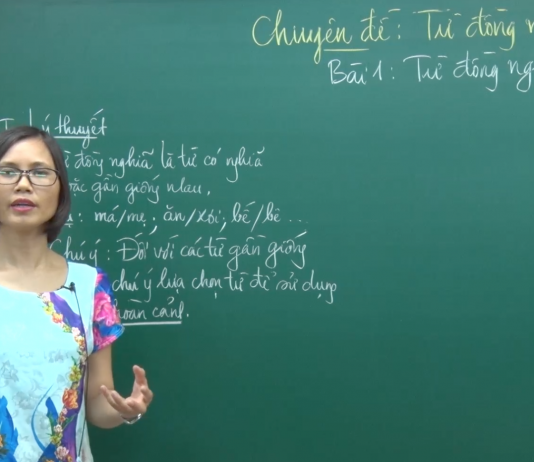 Chuyên đề: Từ đồng n
Bài 1: Từ đồng ng
I. Lý thuyết
đồng nghĩa là từ có nghĩa
oặc gần giống nhau.
: má/mẹ; ăn/xơi; bế/bê ...
Chú ý: Đối với các từ gần giống
chú ý lựa chọn từ để sử dụng
hoàn cảnh.